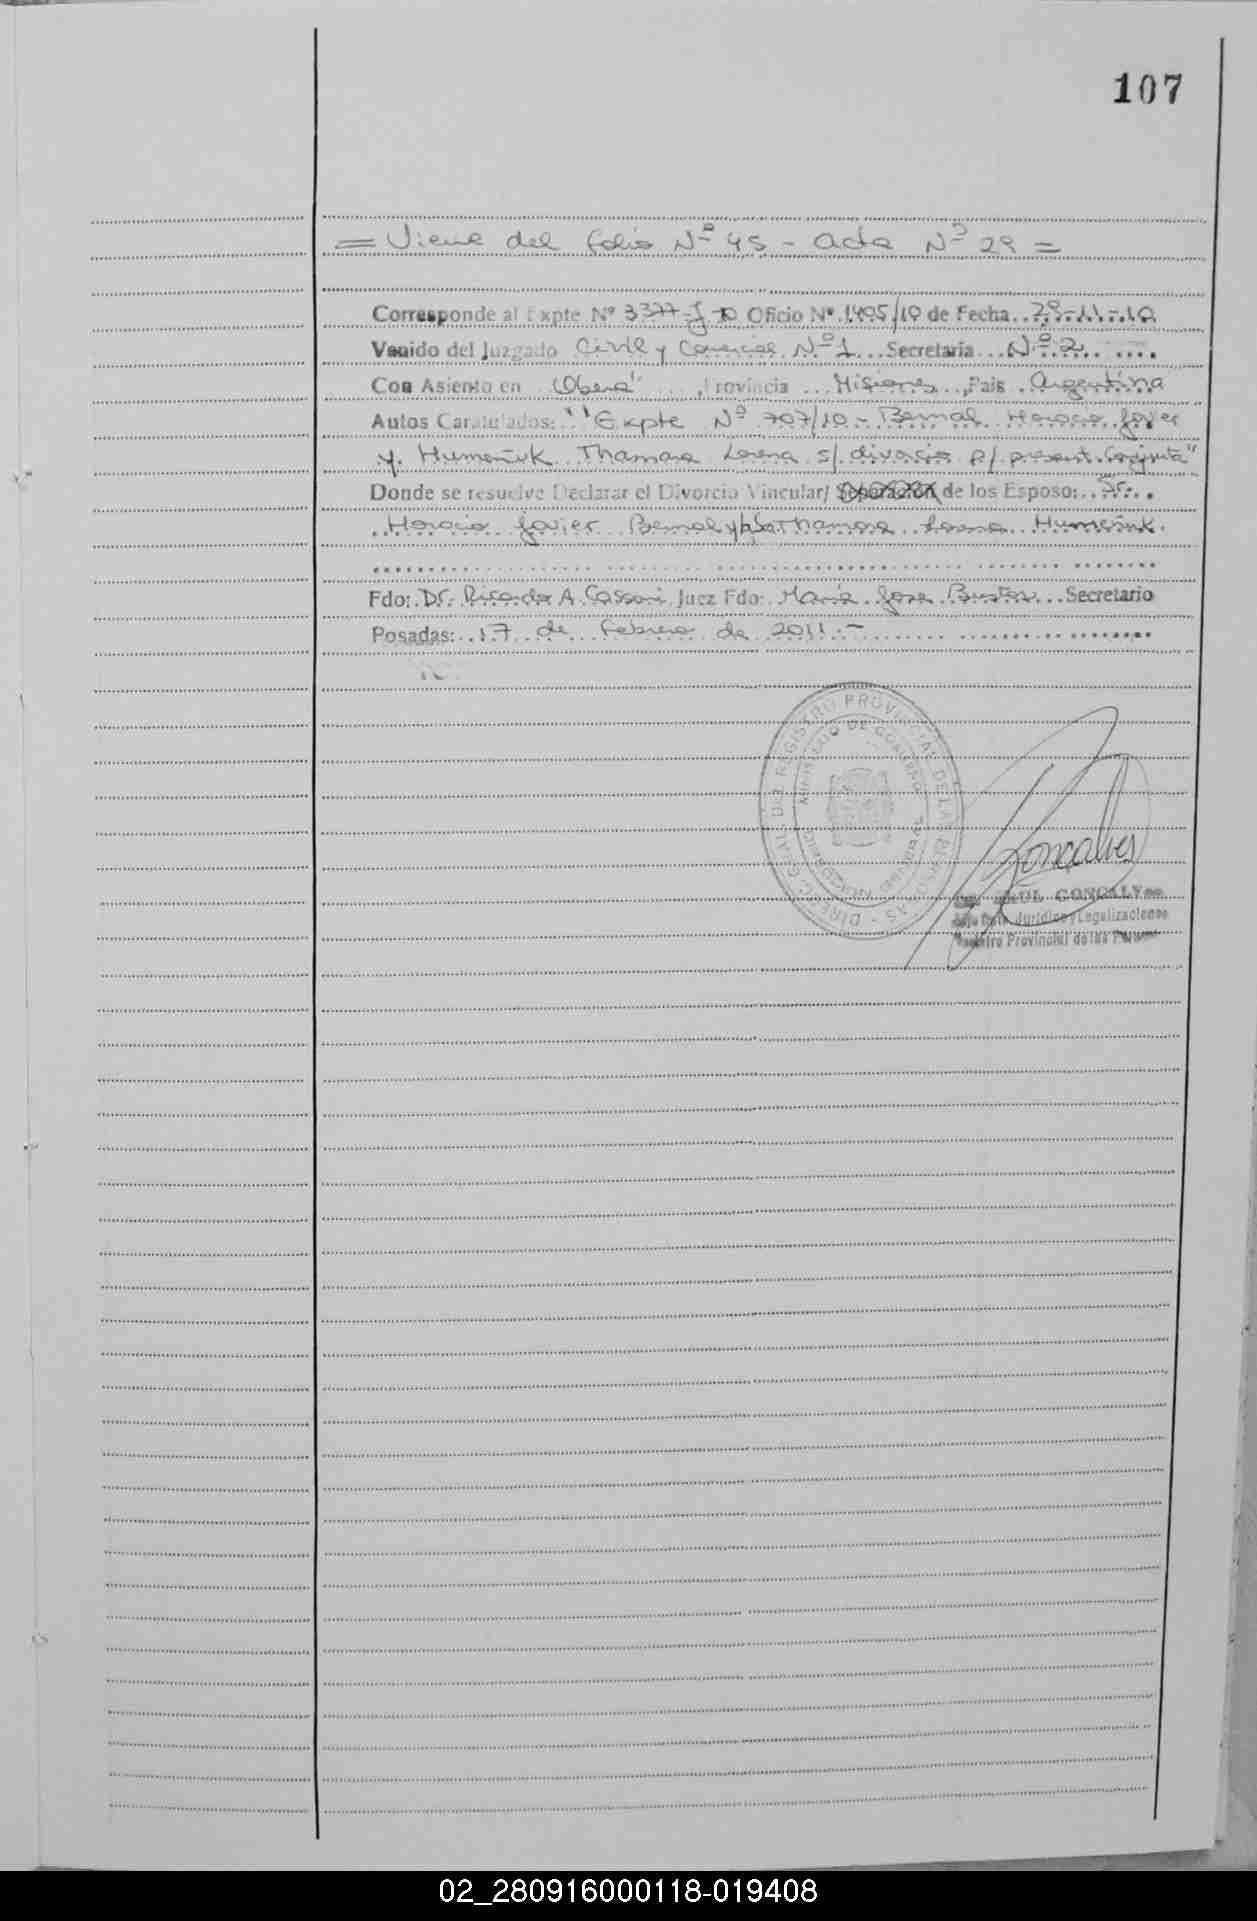 107
= Viene del folio Nº 45 - acta Nº 29 =
Corresponde al Expte Nº 3377-J-10 Oficio Nº 1495/10 de Fecha 29-11-10
Venido del Juzgado Civil y Comercial Nº 1 Secretaria Nº 2
Con Asiento en Oberá, Provincia Misiones, Pais Argentina
Autos Caratulados: "Expte Nº 707/10 - Bernal Horacio Javier
y Humeñuk Thamara Lorena s/ divorcio p/ present. Conjunta"
Donde se resuelve Declarar el Divorcio Vincular/ Separación de los Esposo: Sr.
Horacio Javier Bernal y Thamara Lorena Humeñuk.
Fdo: Dr. Ricardo A. Cassoni Juez Fdo: María Jose Bustos Secretario
Posadas: 17 de febrero de 2011.-
DIREC. GRAL. DEL REGISTRO PROVINCIAL DE LAS PERSONAS
MINISTERIO DE GOBIERNO
Gonçalves
RAUL GONÇALVES
Jurídico y Legalizaciones
Registro Provincial de las Personas
02_280916000118-019408